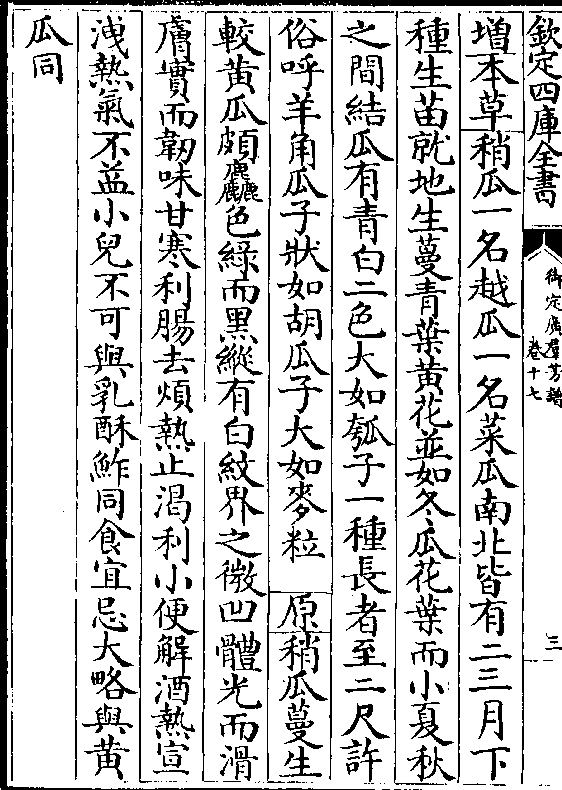 欽定四庫全書
御定廣羣芳譜
卷十七
三
增本草稍瓜一名越瓜一名菜瓜南北皆有二三月下
種生苗就地生蔓青葉黃花並如冬瓜花葉而小夏秋
之間結瓜有青白二色大如瓠子一種長者至二尺許
俗呼羊角瓜子狀如胡瓜子大如麥粒 原稍瓜蔓生
較黃瓜頗麤色綠而黑縱有白紋界之微凹體光而滑
膚實而韌味甘寒利腸去煩熱止渴利小便解酒熱宣
洩熱氣不益小兒不可與乳酥鮓同食宜忌大略與黃
瓜同